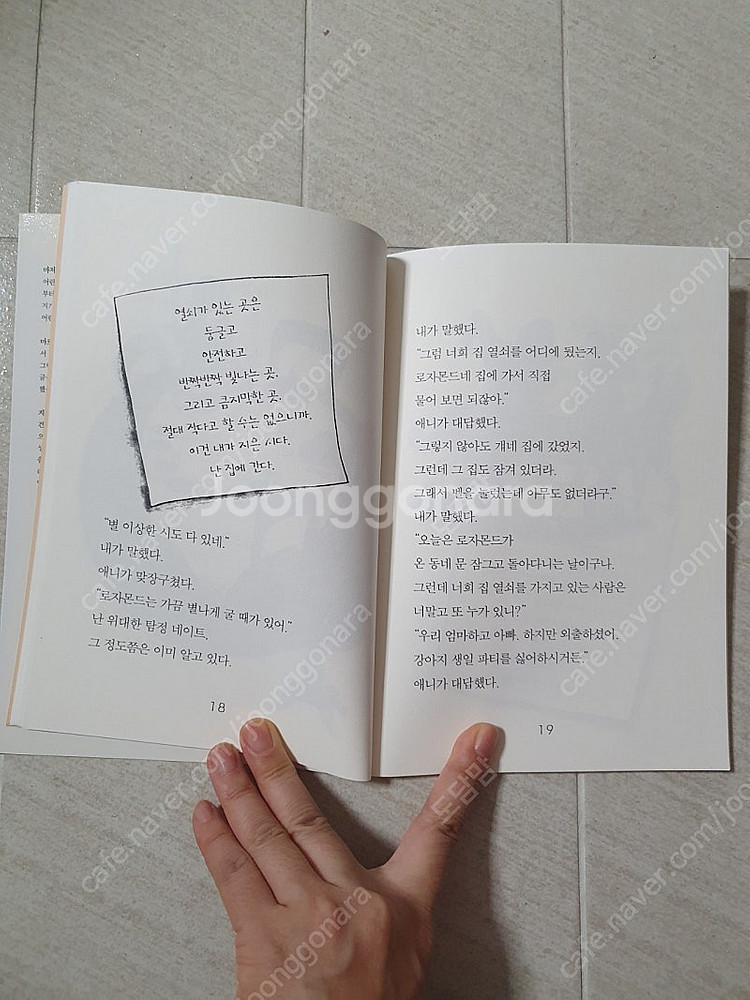 열쇠가 있는 곳은
둥글고
안전하고
반짝반짝 빛나는 곳.
그리고 큼지막한 곳.
절대 작다고 할 수는 없으니까.
이건 내가 지은 시다.
난 집에 간다.
"별 이상한 시도 다 있네."
내가 말했다.
애니가 맞장구쳤다.
"로자몬드는 가끔 별나게 굴 때가 있어."
난 위대한 탐정 네이트.
그 정도쯤은 이미 알고 있다.
18
내가 말했다.
"그럼 너희 집 열쇠를 어디에 뒀는지,
로자몬드네 집에 가서 직접
물어 보면 되잖아."
애니가 대답했다.
"그렇지 않아도 걔네 집에 갔었지.
그런데 그 집도 잠겨 있더라.
그래서 벨을 눌렀는데 아무도 없더라구."
내가 말했다.
"오늘은 로자몬드가
온 동네 문 잠그고 돌아다니는 날이구나.
그런데 너희 집 열쇠를 가지고 있는 사람은
너말고 또 누가 있니?"
"우리 엄마하고 아빠. 하지만 외출하셨어.
강아지 생일 파티를 싫어하시거든."
애니가 대답했다.
19
Joonggonara
cafe.naver.com/joonggonara
도담맘